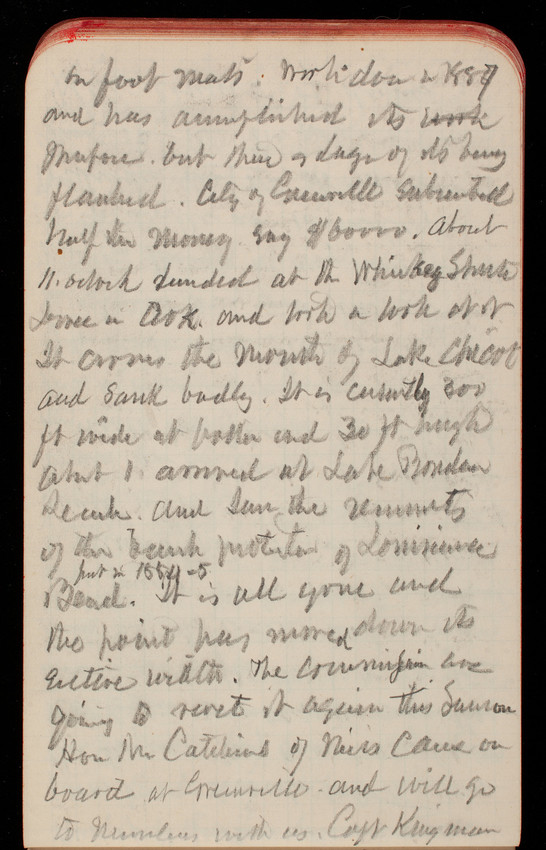 on foot mats. Work done in 1887
and has accomplished its work
purpose. but there is danger of its being
flanked. City of Greenville subscribed
half the money say $60000. About
11. oclock landed at the Whiskey Shute
Levee in Ark. and took a look at it
It crosses the mouth of Lake Chicot
and sank badly. It is currently 300
ft wide at bottom and 30 ft high
about 1 arrived at Lake
and saw the remnants
of the bank protection of Louisiana
put in 1884-5
Bend. It is all gone and
the point has moved down its
entire width. The commission are
going to revet it again this season
Hon Mr Catchings of Miss came on
board at Greenville and will go
to Memphis with us. Capt Kingman